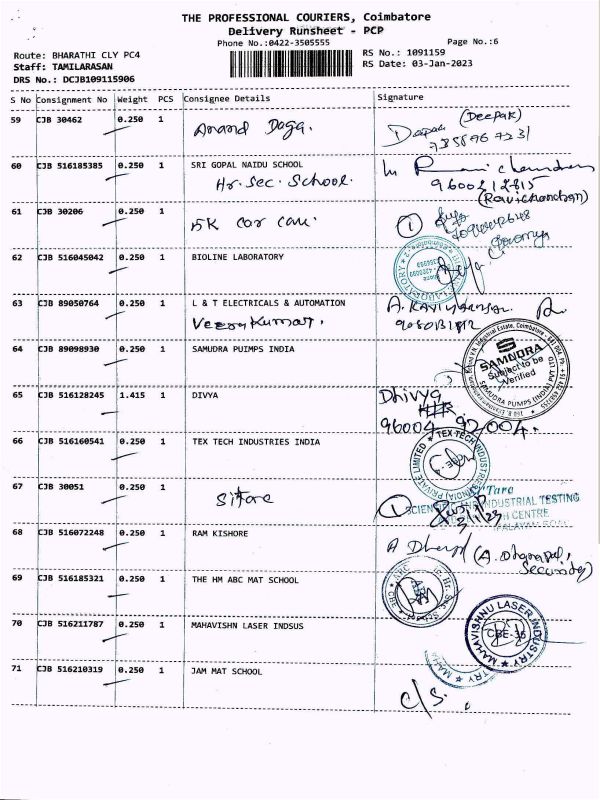 THE PROFESSIONAL COURIERS, Coimbatore
Delivery Runsheet - PCP
Phone No.:0422-3505555
Page No.:6
Route: BHARATHI CLY PC4
RS No.: 1091159
Staff: TAMILARASAN
RS Date: 03-Jan-2023
DRS No.: DCJB109115906
S No Consignment No Weight PCS Consignee Details Signature
59 CJB 30462 0.250 1
Anand Daga.
(Deepak)
60 CJB 516185385 0.250 1 SRI GOPAL NAIDU SCHOOL
Hr. Sec. School.
(Ravichandran)
61 CJB 30206 0.250 1
car care
1
62 CJB 516045042 0.250 1 BIOLINE LABORATORY
LABORATORY
63 CJB 89050764 0.250 1 L & T ELECTRICALS & AUTOMATION
Veerakumar.
64 CJB 89098930 0.250 1 SAMUDRA PUIMPS INDIA
SAMUDRA
Subject to be
Verified
SAMUDRA PUMPS (INDIA) PVT LTD
65 CJB 516128245 1.415 1 DIVYA
Dhivya
96004 92004.
66 CJB 516160541 0.250 1 TEX TECH INDUSTRIES INDIA
TEX TECH INDUSTRIES (INDIA) PRIVATE LIMITED
67 CJB 30051 0.250 1
Sitare
1
SCIENTIFIC AND INDUSTRIAL TESTING
CENTRE
3/1/23
68 CJB 516072248 0.250 1 RAM KISHORE
(A. Dhanapal,
Security)
69 CJB 516185321 0.250 1 THE HM ABC MAT SCHOOL
70 CJB 516211787 0.250 1 MAHAVISHN LASER INDSUS
MAHAVISHNU LASER INDUSTRY
CBE-35
71 CJB 516210319 0.250 1 JAM MAT SCHOOL
C/S.